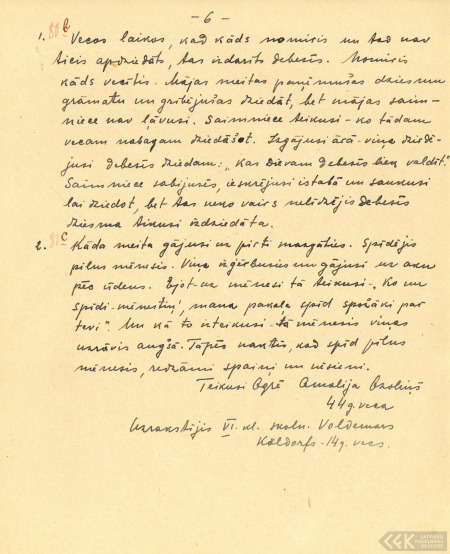 - 6 -
1. Vecos laikos, kad kāds nomiris un tad nav
ticis apdziedāts, tas izdarīts debesīs. Nomiris
kāds vecītis. Mājas meitas paņēmušas dziesmu
grāmatu un gribējušas dziedāt, bet mājas saim-
niece nav ļāvusi. Saimniece teikusi - ko tādam
vecam nabagam dziedāšot. Izgājusi ārā - viņa dzirdē-
jusi debesīs dziedam: "Kas Dievam debesīs liek valdīt."
Saimniece sabijusēs, ieskrējusi istabā un saukusi
lai dziedot, bet tas neko vairs nelīdzējis debesīs
dziesma tikusi izdziedāta.
2. Kāda meita gājusi uz pirti mazgāties. Spīdējis
pilns mēnesis. Viņa izģērbusies un gājusi uz aku
pēc ūdens. Ejot uz mēnesi tā teikusi - "Ko nu
spīdi - mēnestiņ', mana pakaļa spīd spožāki par
tevi". Un kā to izteikusi - tā mēnesis viņas
uzrāvis augšā. Tāpēc naktīs, kad spīd pilns
mēnesis, redzami spaiņi un nēšieni.
Teikusi Ogrē Amalija Ozoliņš
44 g. veca
Uzrakstījis VI. kl. skoln. Voldemars
Koldorfs - 14 g. vecs.
LATVIEŠU
FOLKLORAS
KRĀTUVE